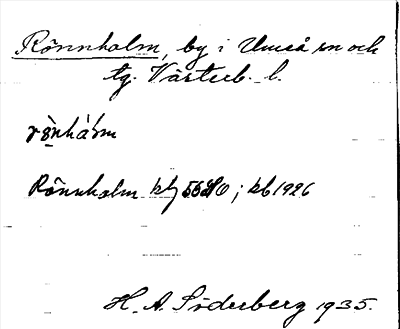 Rönnholm, by i Umeå sn och
tg. Västerb. l.
Rönnholm kbg 55 SO; kb 1926
H. A. Söderberg 1935.